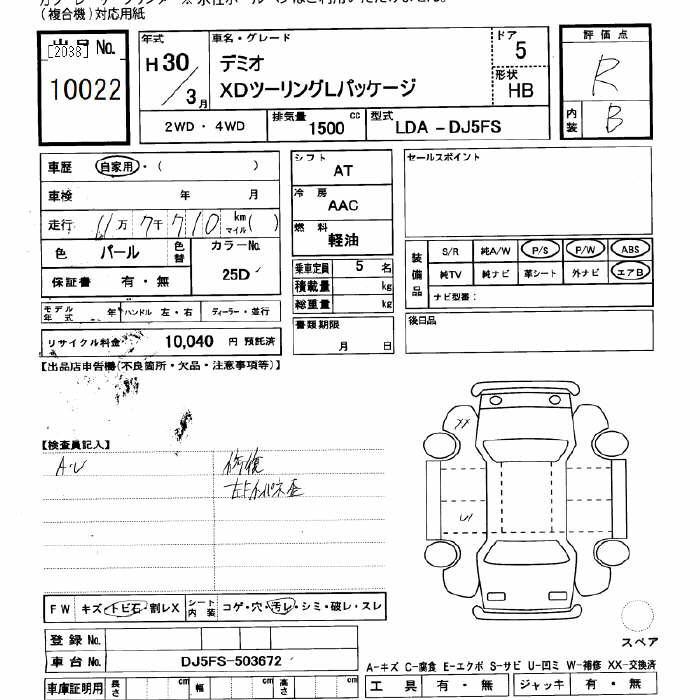 (複合機)対応用紙
出品No.
[2038]
10022
年式
H30/3月
車名・グレード
デミオ
XDツーリングLパッケージ
ドア
5
形状
HB
評価点
R
内装
B
2WD・4WD
排気量
1500 cc
型式
LDA-DJ5FS
車歴 自家用・( )
車検 年 月
走行 万 7千 710 km マイル( )
色 パール 色替
カラーNo.
25D
保証書 有・無
モデル年式 年 ハンドル 左・右 ディーラー・並行
リサイクル料金 10,040 円 預託済
シフト
AT
冷房
AAC
燃料
軽油
乗車定員 5 名
積載量 kg
総重量 kg
書類期限
月 日
セールスポイント
装備品
S/R 純A/W P/S P/W ABS
純TV 純ナビ 革シート 外ナビ エアB
ナビ型番:
後日品
【出品店申告欄(不良箇所・欠品・注意事項等)】
【検査員記入】
A・U
修復
XX
U
FW キズ・トビ石・割レX シート内装 コゲ・穴・汚レ・シミ・破レ・スレ
スペア
登録No.
車台No. DJ5FS-503672
A-キズ C-腐食 E-エクボ S-サビ U-凹ミ W-補修 XX-交換済
車庫証明用 長さ cm 幅 cm 高さ cm
工具 有・無 ジャッキ 有・無